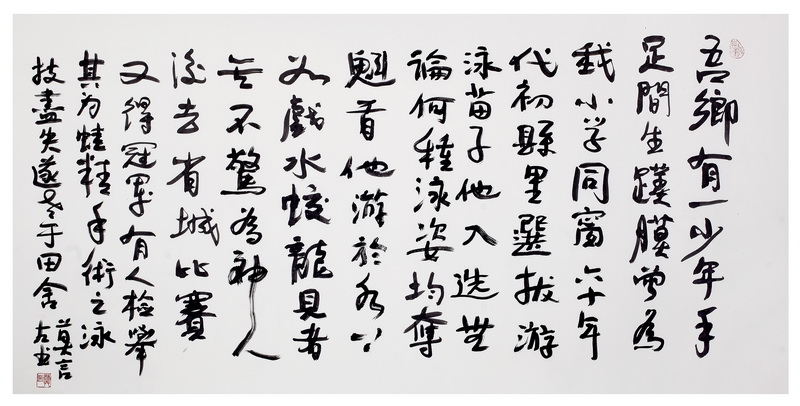 吾鄉有一少年手
足間生蹼膜曾為
我小学同窗六十年
代初縣里選拔游
泳苗子他入选無
論何種泳姿均奪
魁首他游於水
如戲水蛟龍見者
無不驚為神人
後去省城比賽
又得冠軍有人檢舉
其为蛙精手術之泳
技盡失遂老于田舍
莫言
左书